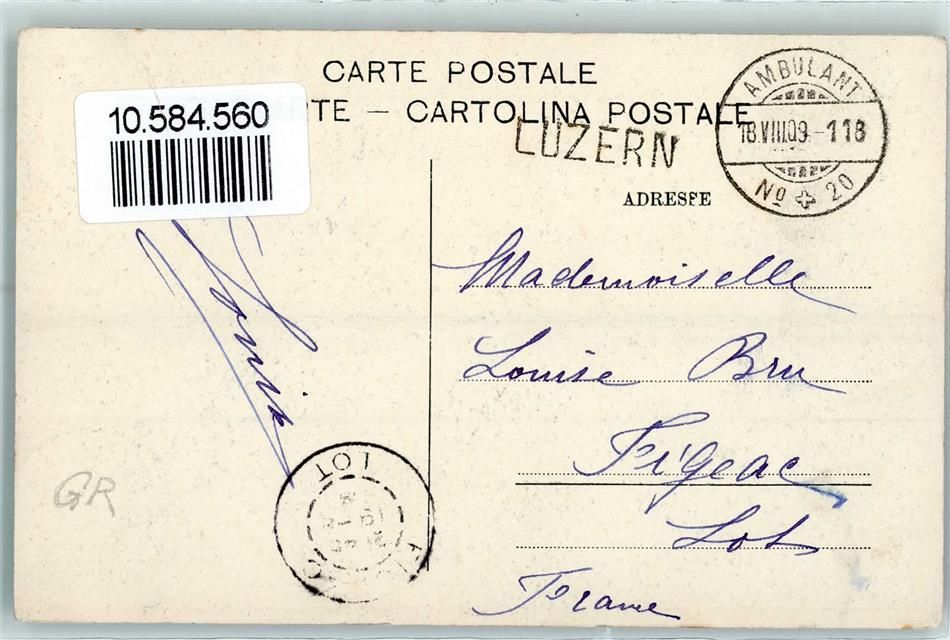 CARTE POSTALE
10.584.560
RTE — CARTOLINA POSTALE
LUZERN
AMBULANT
18.VIII.09-118
No 20
ADRESSE
Mademoiselle
Louise Bru
Figeac
Lot
France
LOT
GR